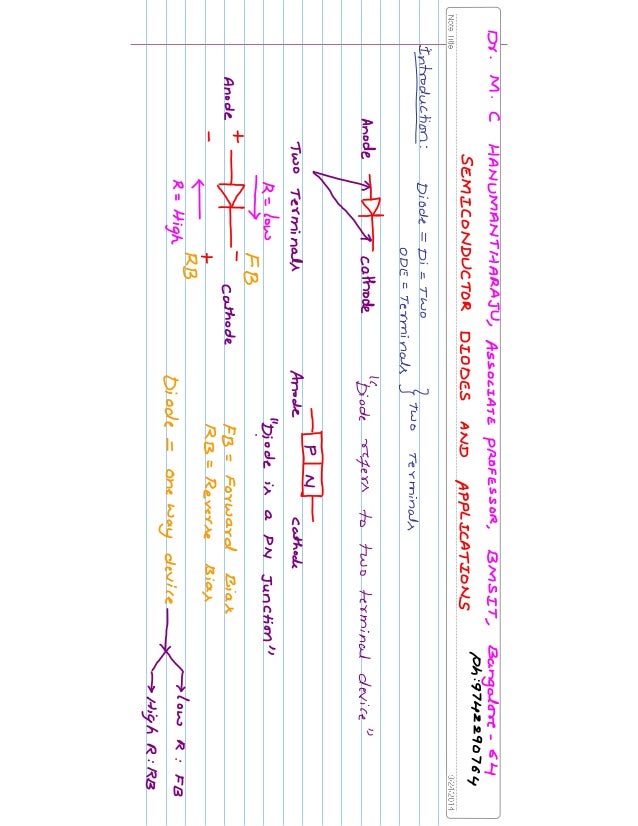 Dr. M. C HANUMANTHARAJU, ASSOCIATE PROFESSOR, BMSIT, Bangalore - 64
SEMICONDUCTOR DIODES AND APPLICATIONS
Ph: 9742290764
Note Title
Introduction: Diode = Di = TWO
ODE = Terminals } TWO Terminals
Anode Cathode "Diode refers to two terminal device"
Two Terminals
P N
Anode Cathode
"Diode is a PN Junction"
R = low FB
Anode + - Cathode
- +
R = High RB
FB = Forward Bias
RB = Reverse Bias
Diode = one way device
low R : FB
High R : RB